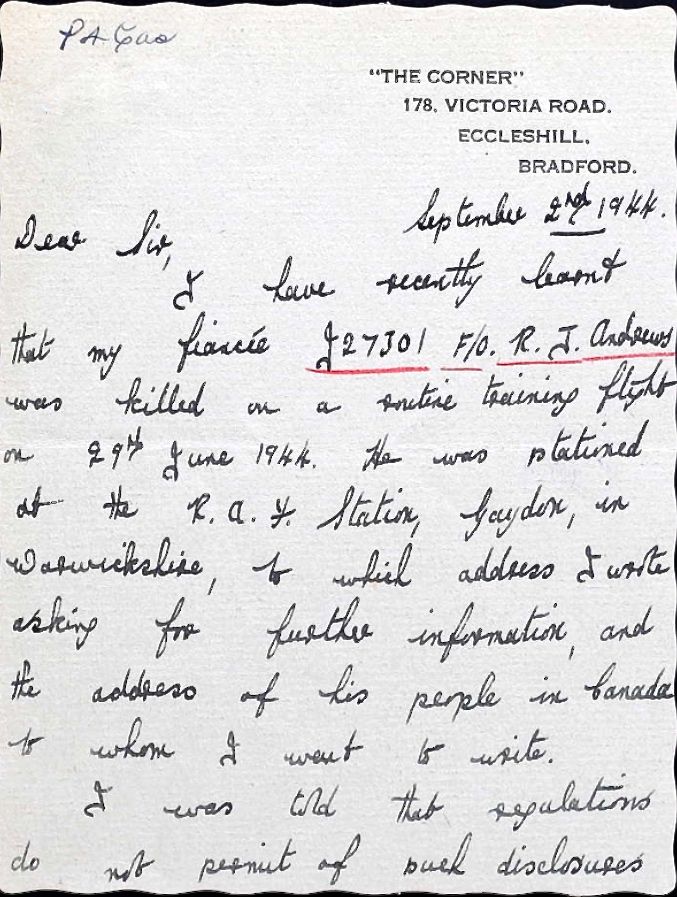 "THE CORNER"
178, VICTORIA ROAD.
ECCLESHILL,
BRADFORD.
September 2nd 1944.
Dear Sir,
I have recently learnt
that my fiancée J27301 F/O. R. J. Andrews
was killed on a routine training flight
on 29th June 1944. He was stationed
at the R.A.F. Station, Gaydon, in
Warwickshire, to which address I wrote
asking for further information, and
the address of his people in Canada
to whom I want to write.
I was told that regulations
do not permit of such disclosures